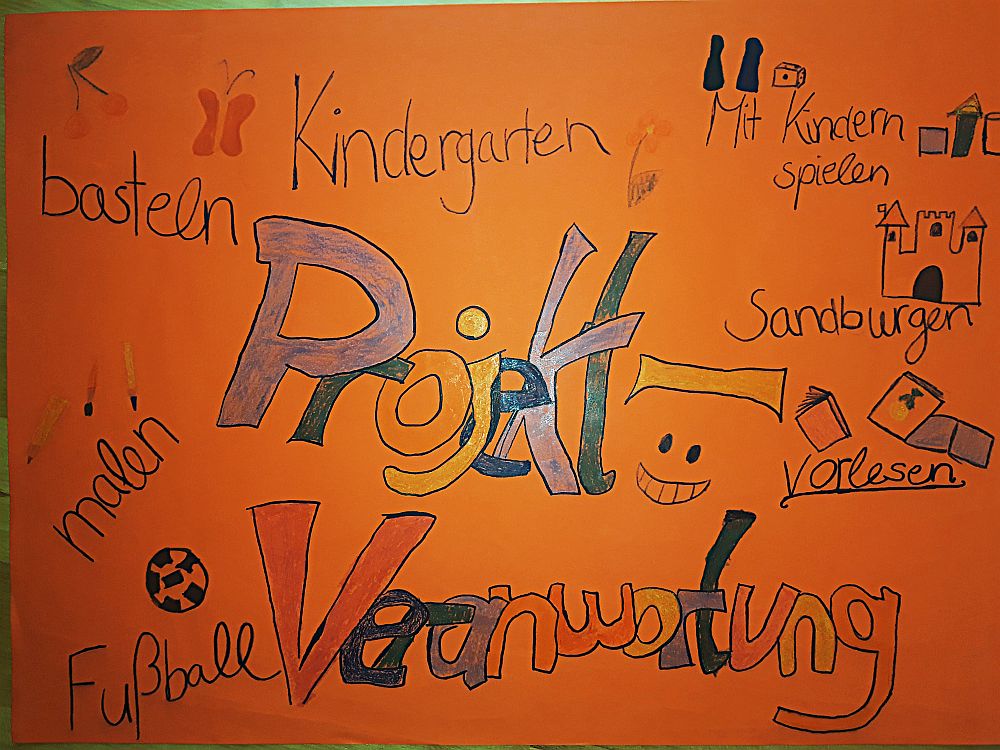 Kindergarten
Mit Kindern
spielen
basteln
Sandburgen
Projekt -
malen
Vorlesen
Veranwortung
Fußball